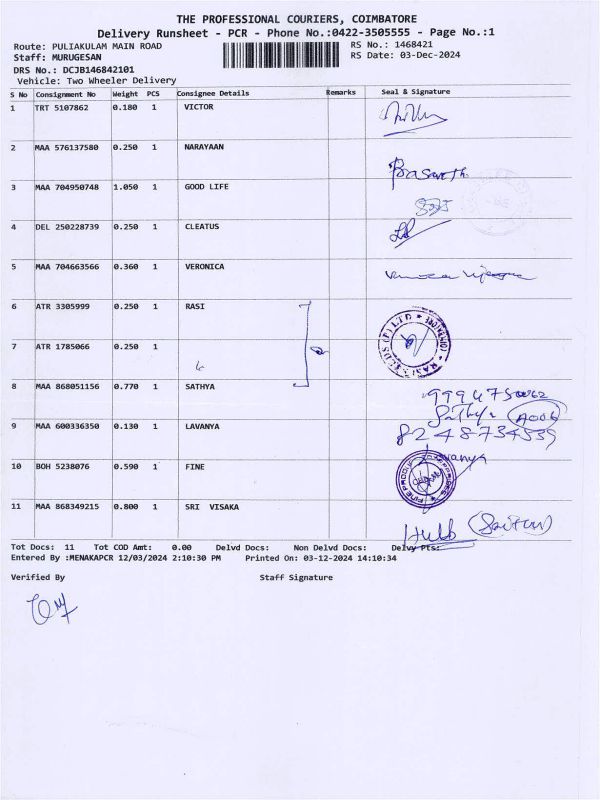 THE PROFESSIONAL COURIERS, COIMBATORE
Delivery Runsheet - PCR - Phone No.:0422-3505555 - Page No.:1
Route: PULIAKULAM MAIN ROAD
RS No.: 1468421
Staff: MURUGESAN
RS Date: 03-Dec-2024
DRS No.: DCJB146842101
Vehicle: Two Wheeler Delivery
S No Consignment No Weight PCS Consignee Details Remarks Seal & Signature
1 TRT 5107862 0.180 1 VICTOR
2 MAA 576137580 0.250 1 NARAYAAN
3 MAA 704950748 1.050 1 GOOD LIFE
4 DEL 250228739 0.250 1 CLEATUS
5 MAA 704663566 0.360 1 VERONICA
6 ATR 3305999 0.250 1 RASI
7 ATR 1785066 0.250 1
8 MAA 868051156 0.770 1 SATHYA
Sathya A006
9 MAA 600336350 0.130 1 LAVANYA
8248734539
Lavanya
10 BOH 5238076 0.590 1 FINE
11 MAA 868349215 0.800 1 SRI VISAKA
Tot Docs: 11 Tot COD Amt: 0.00 Delvd Docs: Non Delvd Docs: Delvy Pts:
Entered By :MENAKAPCR 12/03/2024 2:10:30 PM Printed On: 03-12-2024 14:10:34
Verified By Staff Signature